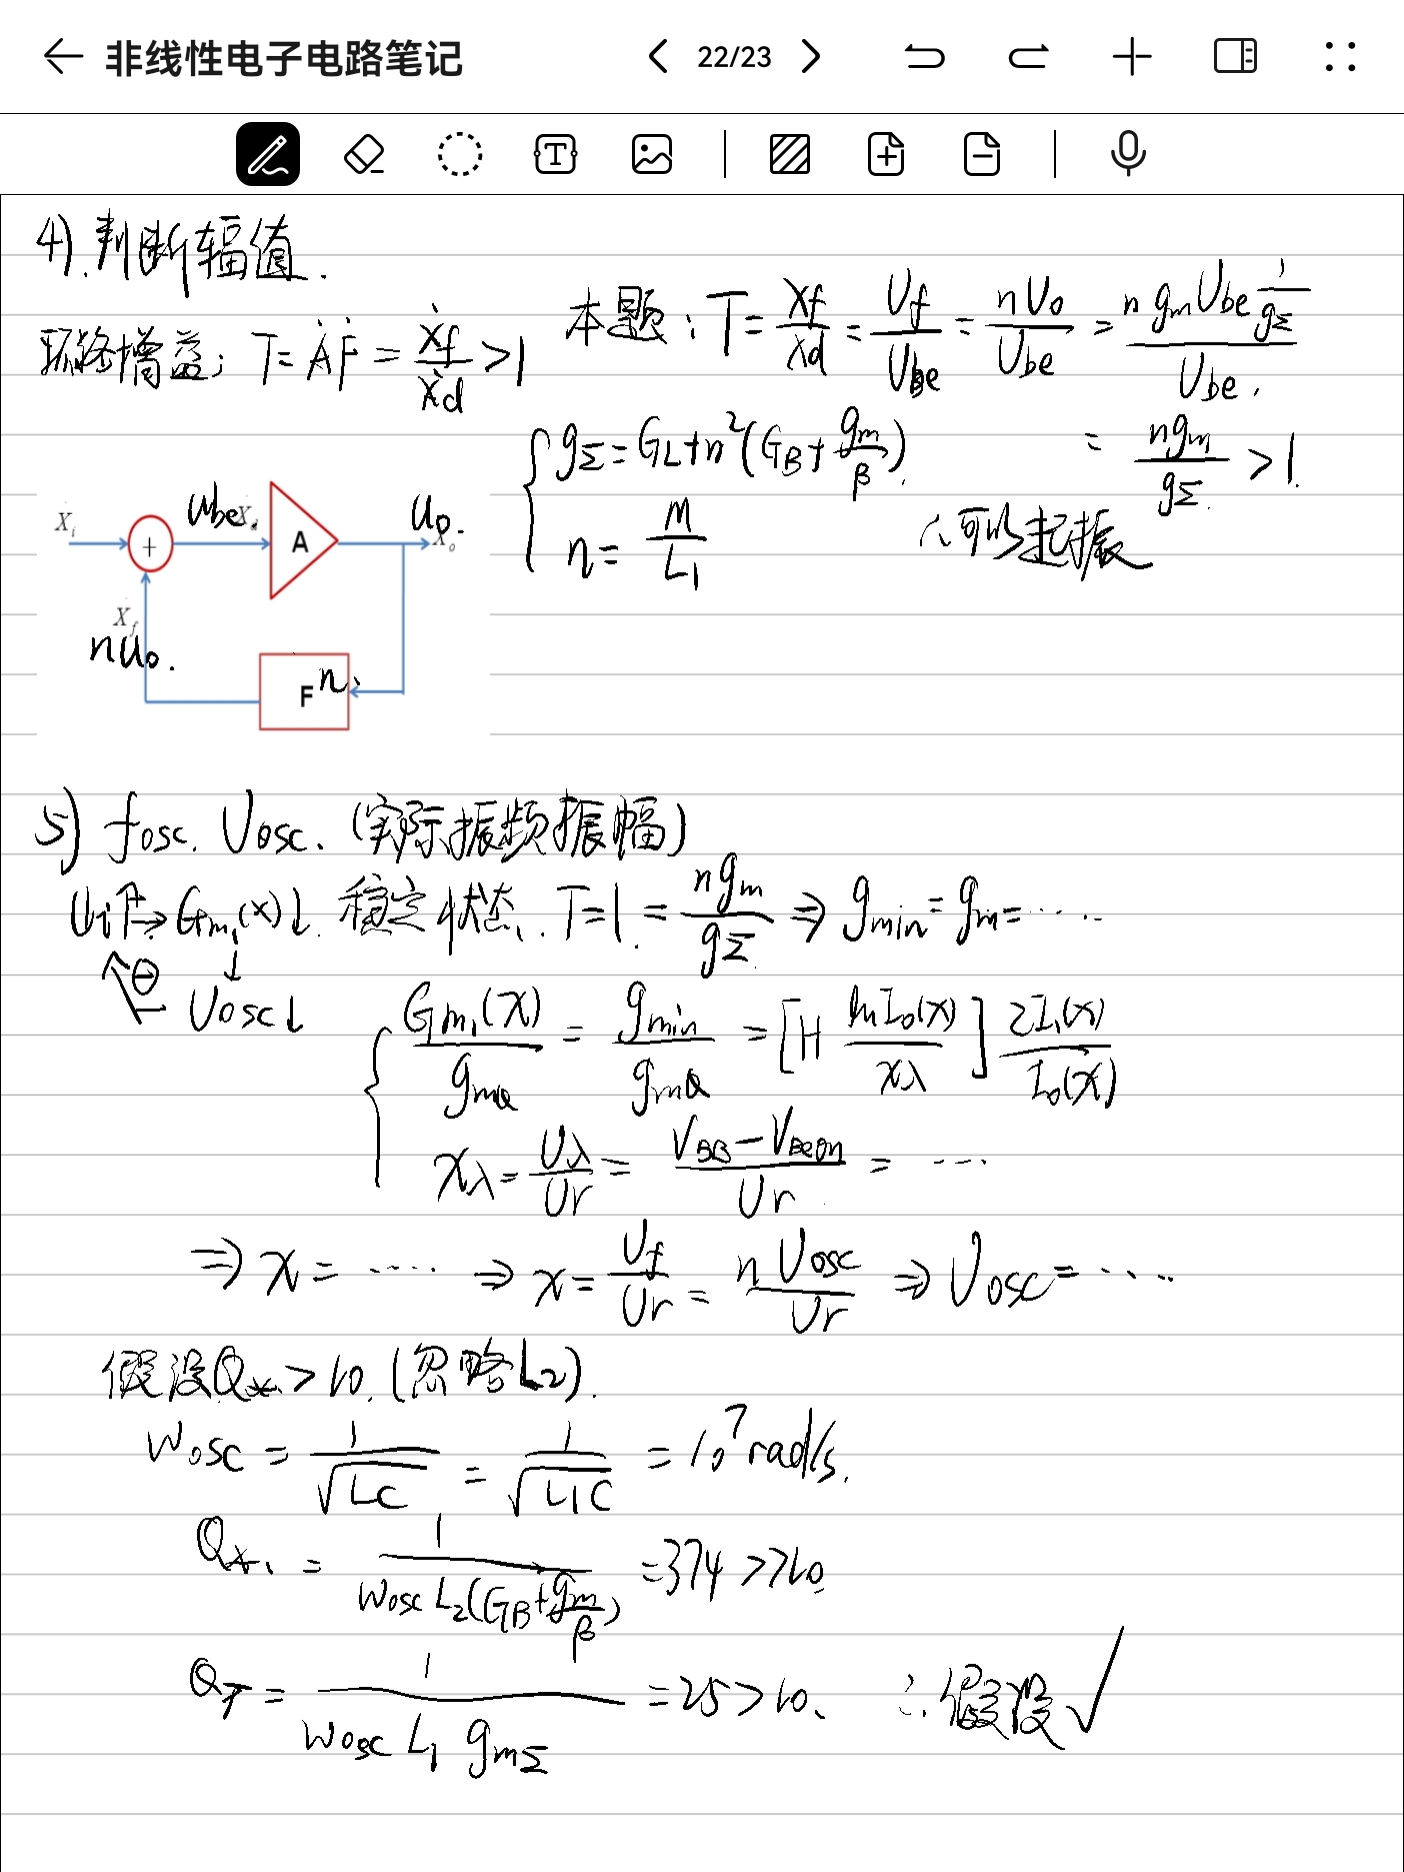 非线性电子电路笔记
22/23
4). 判断辐值.
环路增益: T = ȦḞ = Ẋf/Ẋd > 1
本题: T = Xf/Xd = Uf/Ube = nUo/Ube = n gm Ube 1/gΣ / Ube.
= ngm/gΣ > 1.
{ gΣ = GL + n²(GB + gm/β).
n = M/L1
∴可以起振
Xi + Ube Xd A Uo. Xo
Xf
nUo.
F n.
5) fosc. Uosc. (实际振频振幅)
Ui↑→Gm1(x)↓. 稳定状态. T=1. = ngm/gΣ ⇒ gmin = gm = ·····
⊖ Uosc↓
{ Gm1(x)/gmQ = gmin/gmQ = [H lnI0(x)/xλ] 2I1(x)/I0(x)
xλ = Uλ/Ur = VBB-VBEon/Ur = ···
⇒ x = ····· ⇒ x = Uf/Ur = nUosc/Ur ⇒ Uosc = ·····
假设Q*>10. (忽略L2).
Wosc = 1/√LC = 1/√L1C = 10⁷rad/s.
= 1/WoscL2(GB+gm/β) = 374 >>10.
QT = 1/Wosc L1 gmΣ = 25 > 10. ∴假设√